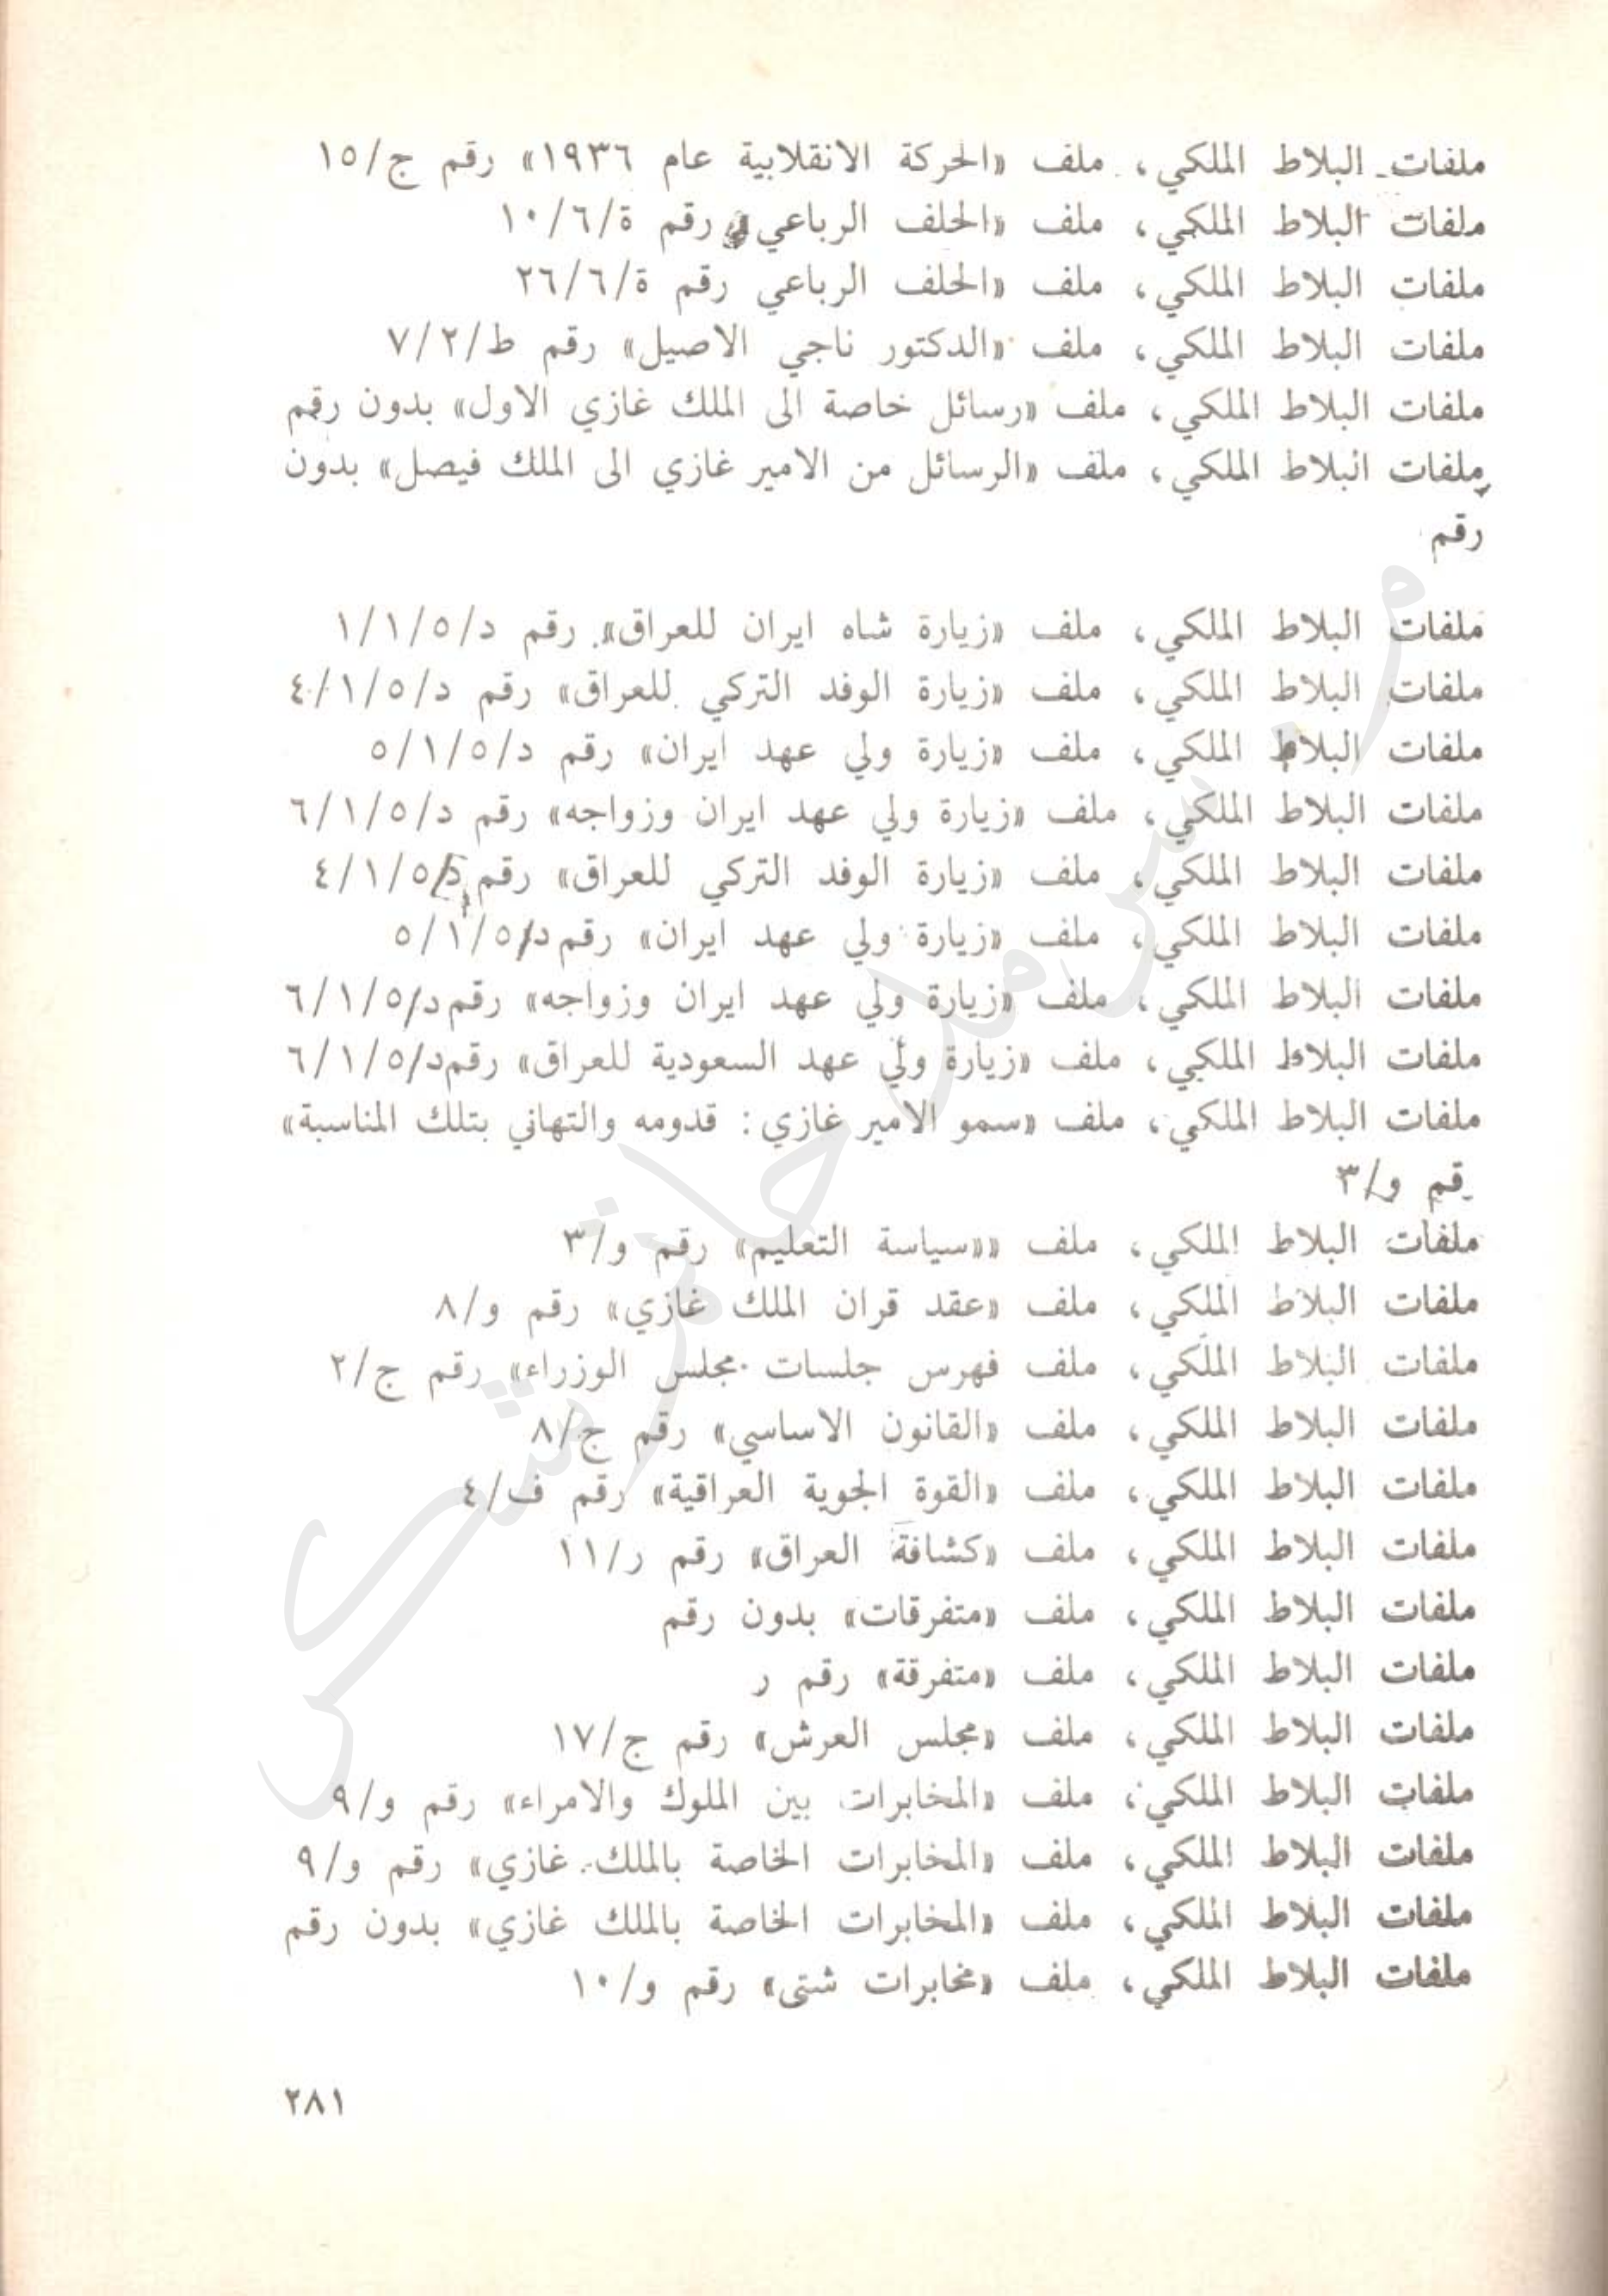 ملفات البلاط الملكي، ملف «الحركة الانقلابية عام ١٩٣٦» رقم ج/١٥
ملفات البلاط الملكي، ملف «الحلف الرباعي» رقم ة/٦/١٠
ملفات البلاط الملكي، ملف «الحلف الرباعي رقم ة/٦/٢٦
ملفات البلاط الملكي، ملف «الدكتور ناجي الاصيل» رقم ط/٧/٢
ملفات البلاط الملكي، ملف «رسائل خاصة الى الملك غازي الاول» بدون رقم
ملفات البلاط الملكي، ملف «الرسائل من الامير غازي الى الملك فيصل» بدون
رقم
ملفات البلاط الملكي، ملف «زيارة شاه ايران للعراق» رقم د/١/١/٥
ملفات البلاط الملكي، ملف «زيارة الوفد التركي للعراق» رقم د/٤/١/٥
ملفات البلاط الملكي، ملف «زيارة ولي عهد ايران» رقم د/٥/١/٥
ملفات البلاط الملكي، ملف «زيارة ولي عهد ايران وزواجه» رقم د/٦/١/٥
ملفات البلاط الملكي، ملف «زيارة الوفد التركي للعراق» رقم د/٤/١/٥
ملفات البلاط الملكي، ملف «زيارة ولي عهد ايران» رقم د/٥/١/٥
ملفات البلاط الملكي، ملف «زيارة ولي عهد ايران وزواجه» رقم د/٦/١/٥
ملفات البلاط الملكي، ملف «زيارة ولي عهد السعودية للعراق» رقم د/٦/١/٥
ملفات البلاط الملكي، ملف «سمو الامير غازي: قدومه والتهاني بتلك المناسبة»
رقم و/٣
ملفات البلاط الملكي، ملف ««سياسة التعليم» رقم و/٣
ملفات البلاط الملكي، ملف «عقد قران الملك غازي» رقم و/٨
ملفات البلاط الملكي، ملف فهرس جلسات مجلس الوزراء» رقم ج/٢
ملفات البلاط الملكي، ملف «القانون الاساسي» رقم ج/٨
ملفات البلاط الملكي، ملف «القوة الجوية العراقية» رقم ف/٤
ملفات البلاط الملكي، ملف «كشافة العراق» رقم ر/١١
ملفات البلاط الملكي، ملف «متفرقات» بدون رقم
ملفات البلاط الملكي، ملف «متفرقة» رقم ر
ملفات البلاط الملكي، ملف «مجلس العرش» رقم ج/١٧
ملفات البلاط الملكي، ملف «المخابرات بين الملوك والامراء» رقم و/٩
ملفات البلاط الملكي، ملف «المخابرات الخاصة بالملك غازي» رقم و/٩
ملفات البلاط الملكي، ملف «المخابرات الخاصة بالملك غازي» بدون رقم
ملفات البلاط الملكي، ملف «مخابرات شتى» رقم و/١٠
٢٨١